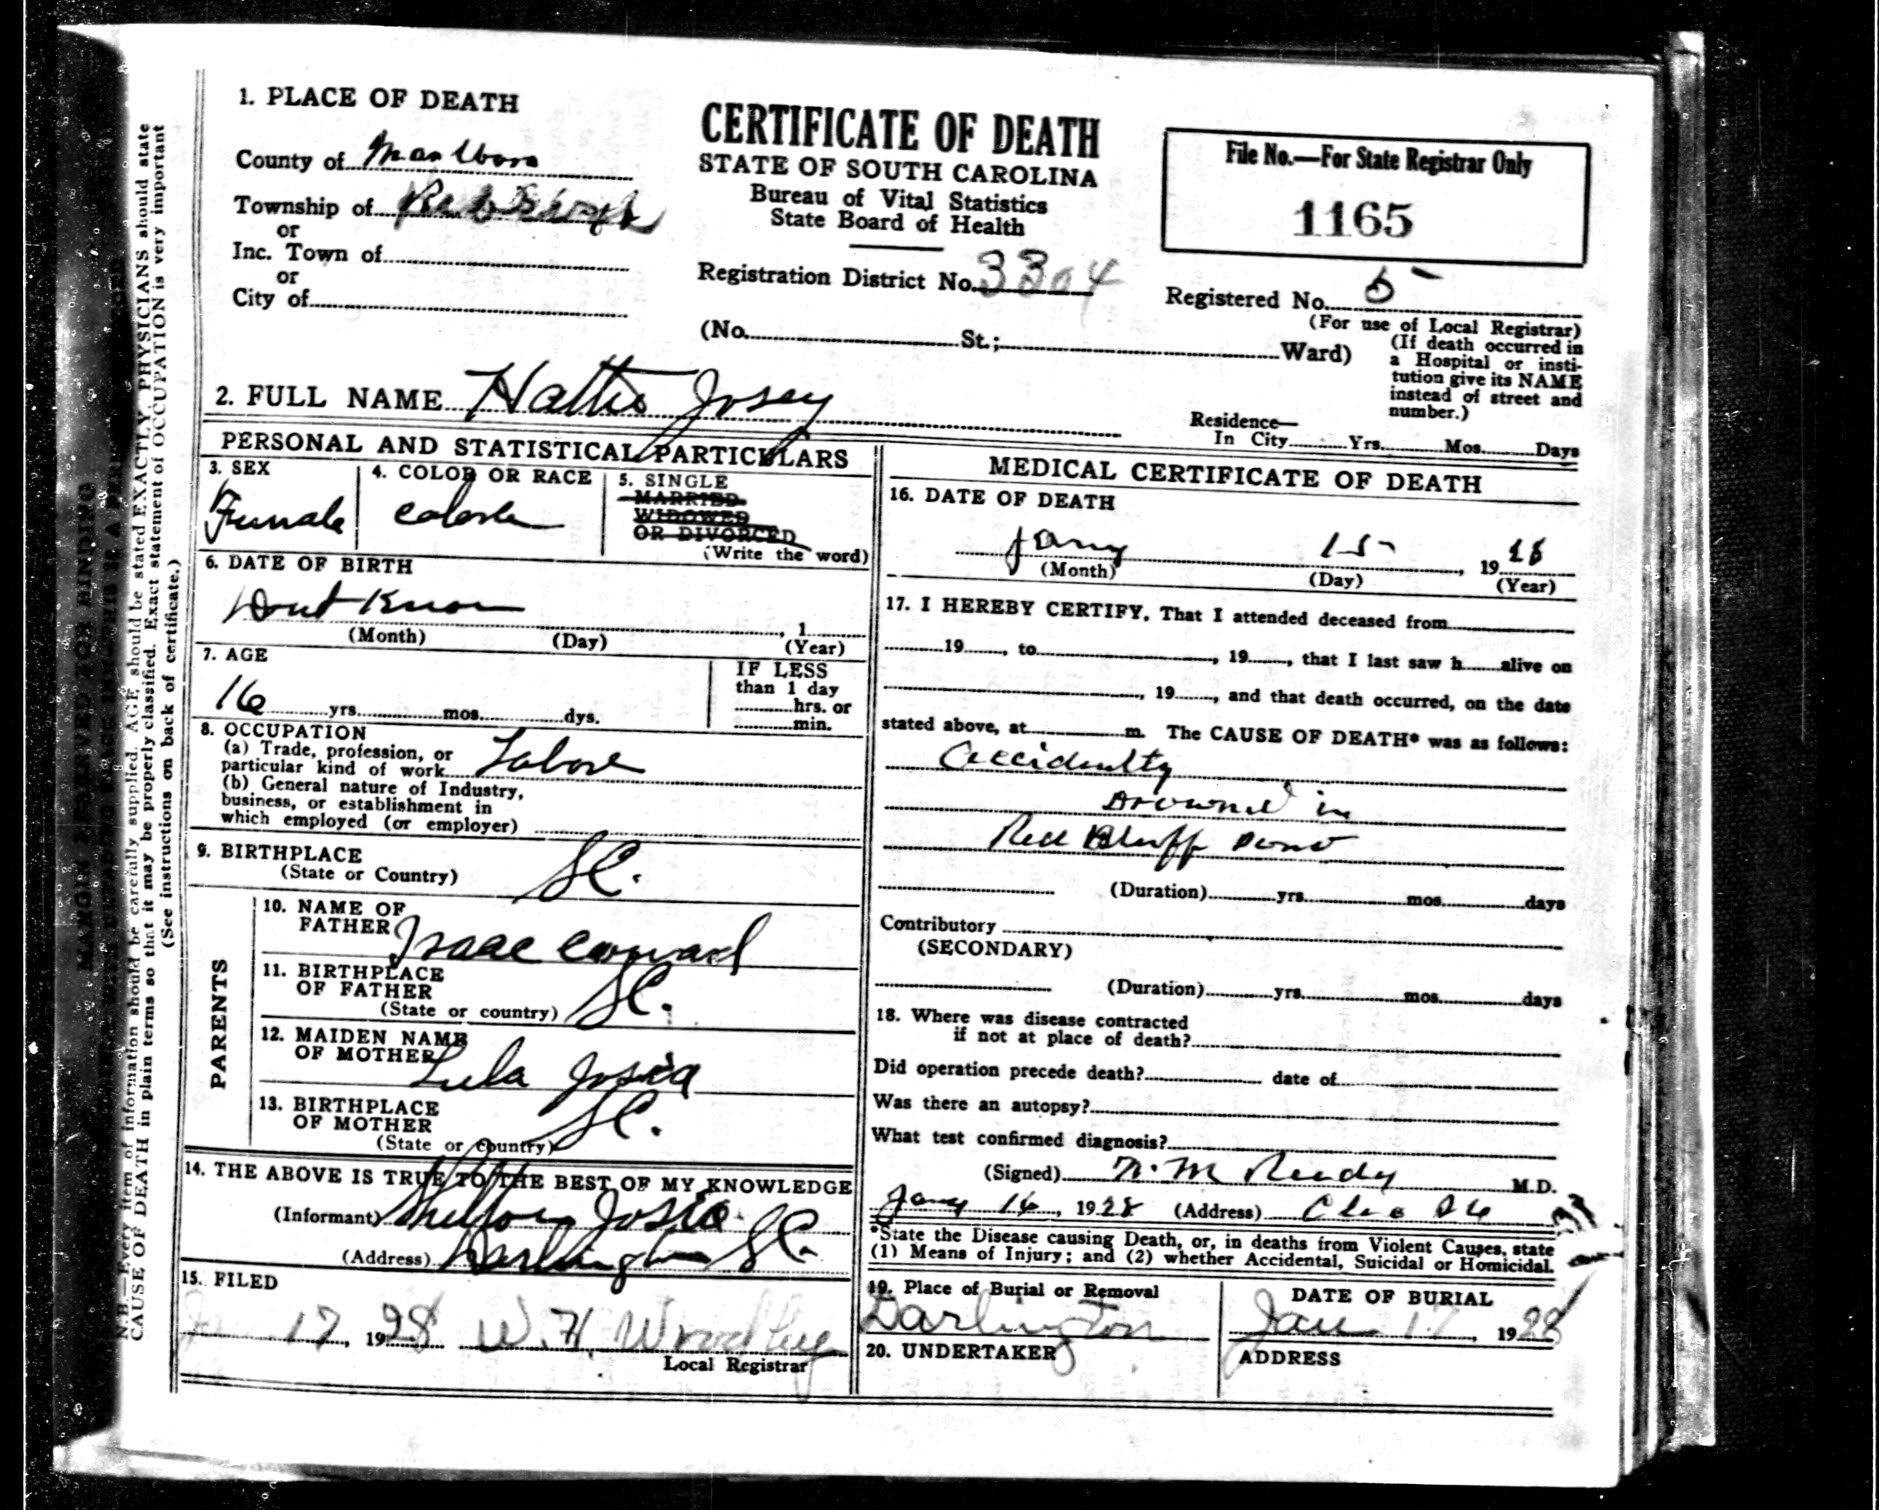 1. PLACE OF DEATH
County of Marlboro
Township of
or
Inc. Town of
or
City of
CERTIFICATE OF DEATH
STATE OF SOUTH CAROLINA
Bureau of Vital Statistics
State Board of Health
Registration District No. 3304
(No. St.; Ward)
File No.—For State Registrar Only
1165
Registered No. 5
(For use of Local Registrar)
(If death occurred in
a Hospital or insti-
tution give its NAME
instead of street and
number.)
2. FULL NAME Hattie Josey
Residence—
In City Yrs. Mos. Days
PERSONAL AND STATISTICAL PARTICULARS
3. SEX
Female
4. COLOR OR RACE
5. SINGLE
MARRIED
WIDOWED
OR DIVORCED
(Write the word)
6. DATE OF BIRTH
Dont Know
, 1
(Month) (Day) (Year)
7. AGE
16 yrs. mos. dys.
IF LESS
than 1 day
hrs. or
min.
8. OCCUPATION
(a) Trade, profession, or
particular kind of work
(b) General nature of Industry,
business, or establishment in
which employed (or employer)
9. BIRTHPLACE
(State or Country) S.C.
PARENTS
10. NAME OF
FATHER Isaac
11. BIRTHPLACE
OF FATHER
(State or country) S.C.
12. MAIDEN NAME
OF MOTHER Lula Josia
13. BIRTHPLACE
OF MOTHER
(State or country) S.C.
14. THE ABOVE IS TRUE TO THE BEST OF MY KNOWLEDGE
(Informant) Josia
(Address) Darlington S.C.
15. FILED
17, 1928 W. H. Woodley
Local Registrar
MEDICAL CERTIFICATE OF DEATH
16. DATE OF DEATH
Jany 15 , 1928
(Month) (Day) (Year)
17. I HEREBY CERTIFY, That I attended deceased from
19 , to , 19 , that I last saw h alive on
, 19 , and that death occurred, on the date
stated above, at m. The CAUSE OF DEATH* was as follows:
Accidently
Drowned in
Red Bluff Pond
(Duration) yrs. mos. days
Contributory
(SECONDARY)
(Duration) yrs. mos. days
18. Where was disease contracted
if not at place of death?
Did operation precede death? date of
Was there an autopsy?
What test confirmed diagnosis?
(Signed) M.D.
Jany 16, 1928 (Address) Clio SC
*State the Disease causing Death, or, in deaths from Violent Causes, state
(1) Means of Injury; and (2) whether Accidental, Suicidal or Homicidal.
19. Place of Burial or Removal
Darlington
DATE OF BURIAL
Jan 17, 1928
20. UNDERTAKER
ADDRESS
MARGIN RESERVED FOR BINDING
N.B.—Every item of information should be carefully supplied. AGE should be stated EXACTLY. PHYSICIANS should state
CAUSE OF DEATH in plain terms so that it may be properly classified. Exact statement of OCCUPATION is very important
(See instructions on back of certificate.)